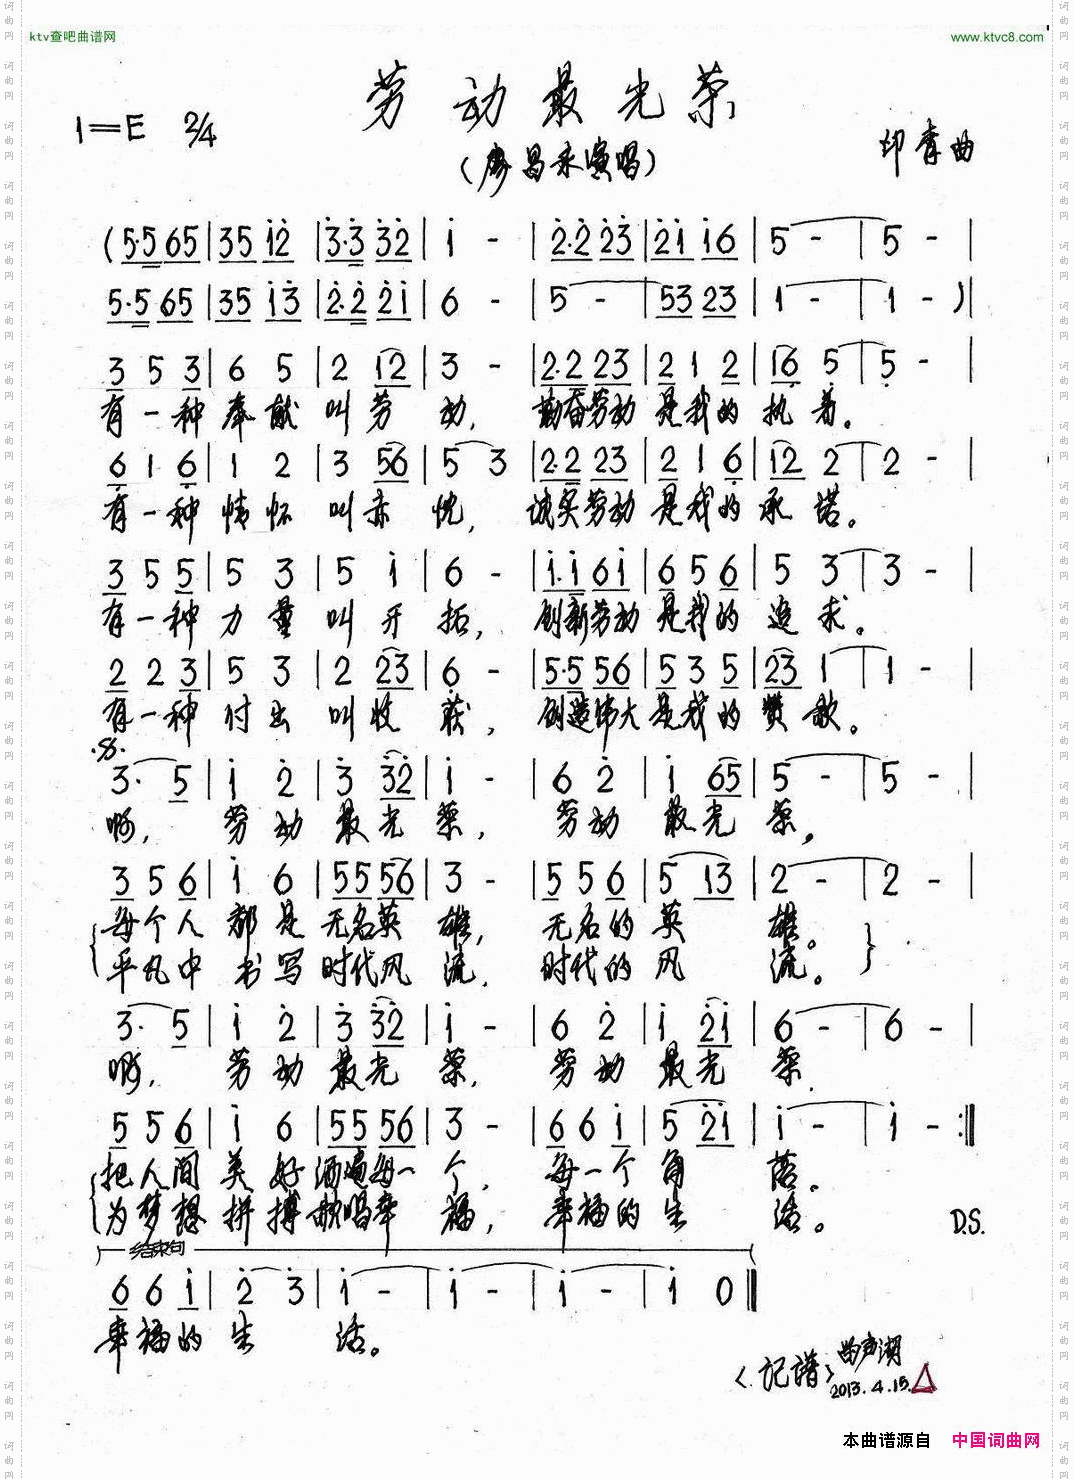 ktv查吧曲谱网
www.ktvc8.com
劳动最光荣
1=E 2/4
(廖昌永演唱)
印青曲
(5·5 65|35 12|3·3 32|1 -|2·2 23|21 16|5 -|5 -|
5·5 65|35 13|2·2 21|6 -|5 -|53 23|1 -|1 -)|
3 5 3|6 5|2 12|3 -|2·2 23|2 1 2|16 5|5 -|
有一种奉献叫劳动,勤奋劳动是我的执着。
6 1 6|1 2|3 56|5 3|2·2 23|2 1 6|12 2|2 -|
有一种情怀叫赤忱,诚实劳动是我的承诺。
3 5 5|5 3|5 1|6 -|1·1 61|6 5 6|5 3|3 -|
有一种力量叫开拓,创新劳动是我的追求。
2 2 3|5 3|2 23|6 -|5·5 56|5 3 5|23 1|1 -|
有一种付出叫收获,创造伟大是我的赞歌。
3· 5|1 2|3 32|1 -|6 2|1 65|5 -|5 -|
啊,劳动最光荣,劳动最光荣,
3 5 6|1 6|55 56|3 -|5 5 6|5 13|2 -|2 -|
每个人都是无名英雄,无名的英雄。
平凡中书写时代风流,时代的风流。
3· 5|1 2|3 32|1 -|6 2|1 21|6 -|6 -|
啊,劳动最光荣,劳动最光荣,
5 5 6|1 6|55 56|3 -|6 6 1|5 21|1 -|1 -:||
把人间美好洒遍每一个,每一个角落。
为梦想拼搏歌唱幸福,幸福的生活。
D.S.
结束句
6 6 1|2 3|1 -|1 -|1 -|1 0||
幸福的生活。
<记谱>曲声湖
2013.4.15.
本曲谱源自 中国词曲网
词曲网